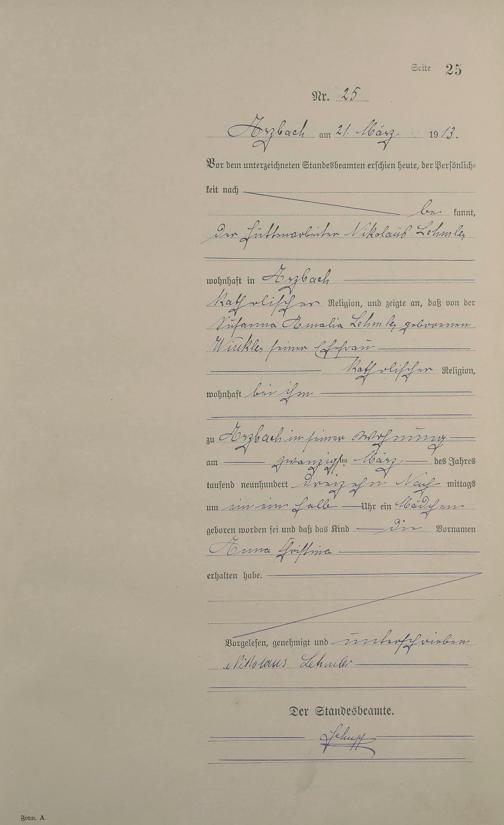 Seite 25
Nr. 25
Arzbach am 21. März 1913.
Vor dem unterzeichneten Standesbeamten erschien heute, der Persönlich-
keit nach
be kannt,
der Hüttenarbeiter Nikolaus Lehmler
wohnhaft in Arzbach
Katholischer Religion, und zeigte an, daß von der
Susanna Amalia Lehmler geborenen
Winkler seiner Ehefrau
Katholischer Religion,
wohnhaft bei ihm
zu Arzbach in seiner Wohnung
am zwanzigsten März des Jahres
tausend neunhundert dreizehn Nach mittags
um ein halb Uhr ein Mädchen
geboren worden sei und daß das Kind die Vornamen
Anna Christina
erhalten habe.
Vorgelesen, genehmigt und unterschrieben
Nikolaus Lehmler
Der Standesbeamte.
Form. A.